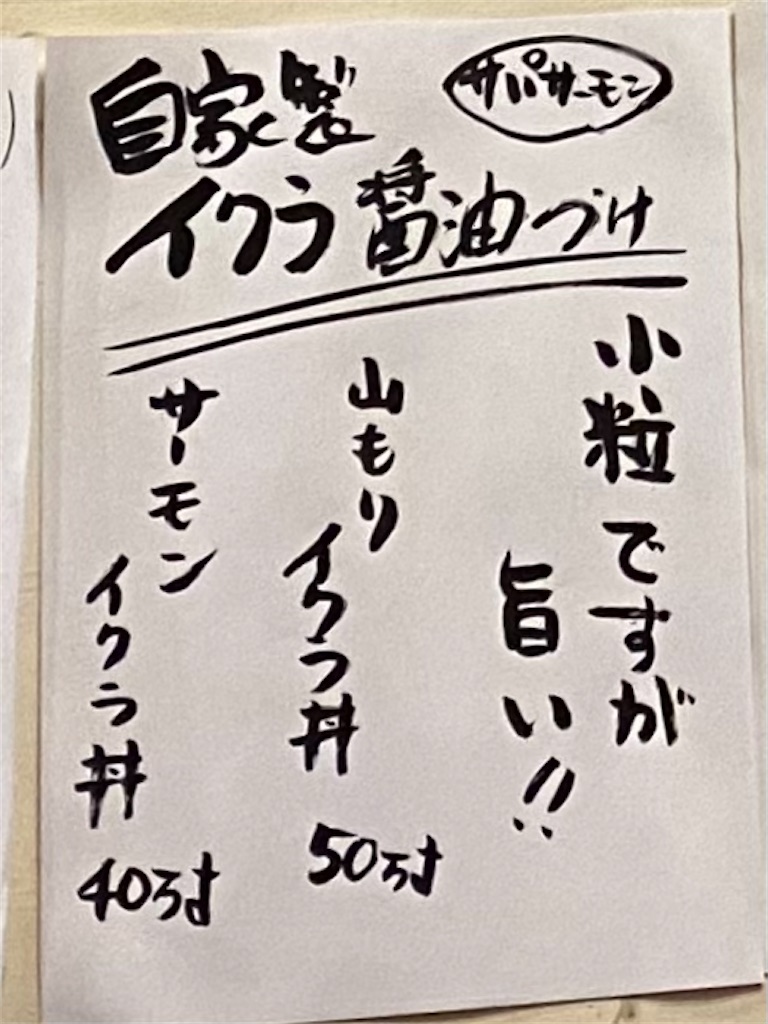 自家製
サパサーモン
イクラ醤油づけ
小粒ですが
旨い!!
山もり
イクラ丼
50万寸
サーモン
イクラ丼
40万寸